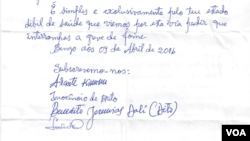 É simples e exclusivamente pelo teu estado
débil de saúde que viemos por esta via pedir que
interrompas a greve de fome.
Bengo aos 03 de Abril de 2016
Subscrevemo-nos:
Inocêncio de Brito
Benedito Jeremias Dali (Dito)
VOA